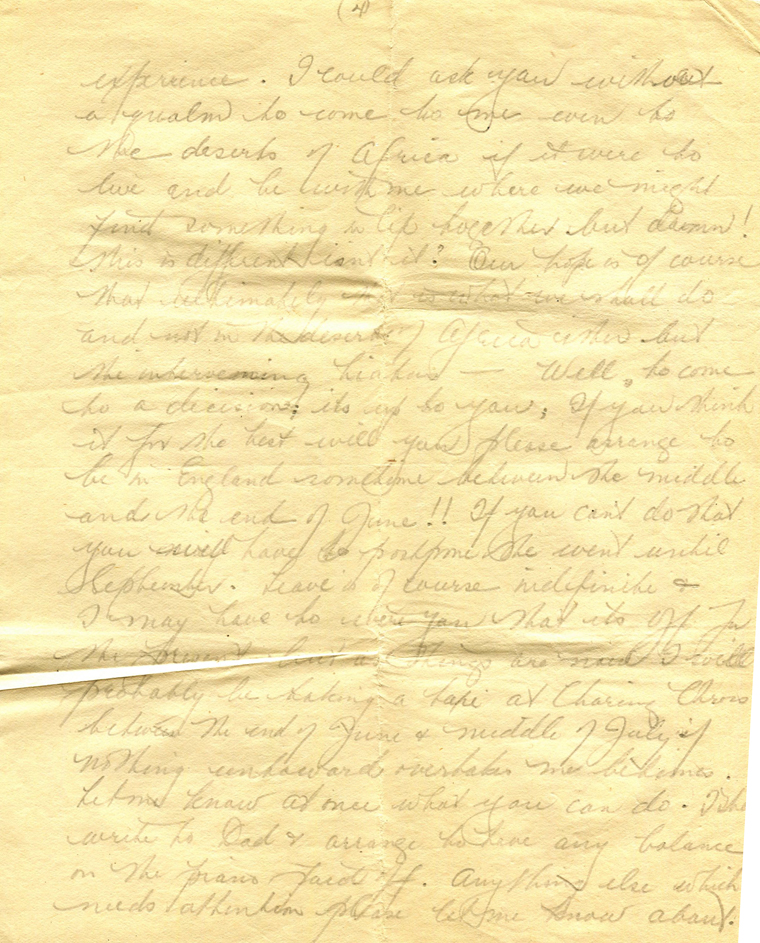 (4)
experience. I could ask you without
a qualm to come to me even to
the deserts of Africa if it were to
live and be with me where we might
find something in life together but damn!
this is different isn't it? Our hope is of course
that ultimately that is what we shall do
and not in the deserts of Africa either but
the intervening hiatus — Well, to come
to a decision; its up to you; If you think
it for the best will you please arrange to
be in England sometime between the middle
and the end of June!! If you can't do that
you will have to postpone the event until
September. Leave is of course indefinite &
I may have to wire you that its off for
the present but as things are now I will
probably be taking a taxi at Charing Cross
between the end of June & middle of July if
nothing untoward overtakes me betimes.
Let me know at once what you can do. I'll
write to Dad & arrange to have any balance
on the piano paid off. Anything else which
needs attention please let me know about.